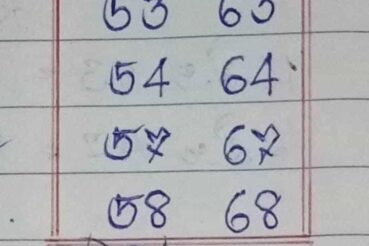 53 63
54 64
57 67
58 68